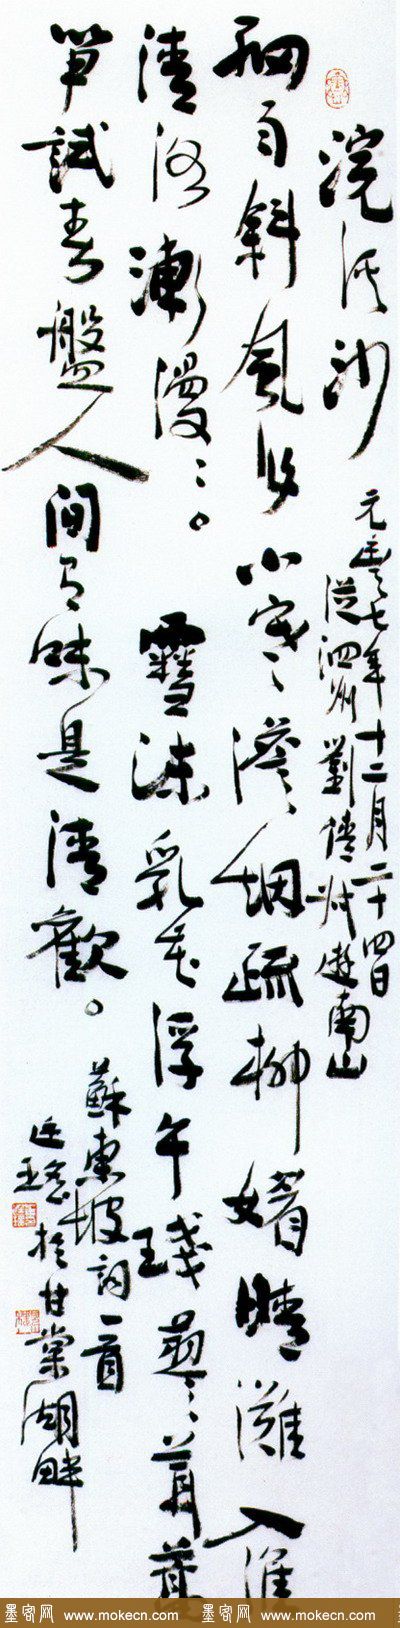 浣溪沙
元豐七年十二月二十四日
從泗州劉倩叔遊南山
細雨斜風作小寒淡烟疏柳媚晴灘入淮
清洛漸漫々。雪沫乳花浮午琖蓼茸蒿
笋試春盤人間有味是清歡。
蘇東坡詞一首
於甘棠湖畔
墨客网 www.mokecn.com 墨客网 www.mokecn.com